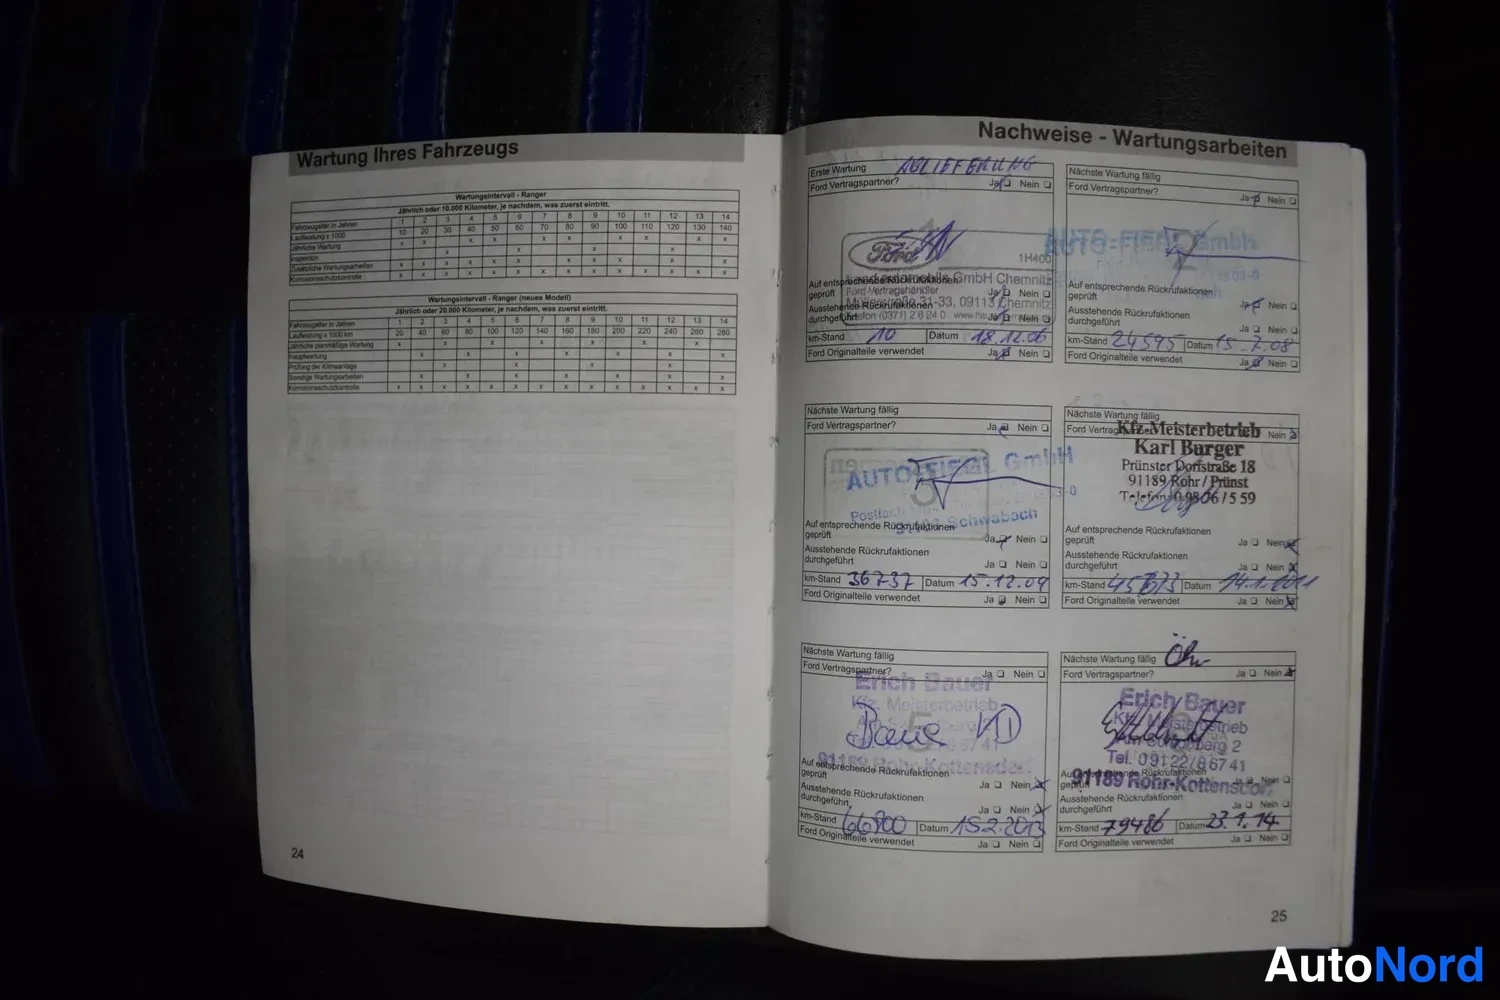 Wartung Ihres Fahrzeugs
Wartungsintervall - Ranger
Jährlich oder 10.000 Kilometer, je nachdem, was zuerst eintritt.
Fahrzeugalter in Jahren 1 2 3 4 5 6 7 8 9 10 11 12 13 14
Laufleistung x 1000 10 20 30 40 50 60 70 80 90 100 110 120 130 140
Jährliche Wartung
Inspektion
Zusätzliche Wartungsarbeiten
Korrosionsschutzkontrolle x x x x x x x x x x x x x x
Wartungsintervall - Ranger (neues Modell)
Jährlich oder 20.000 Kilometer, je nachdem, was zuerst eintritt.
Fahrzeugalter in Jahren 1 2 3 4 5 6 7 8 9 10 11 12 13 14
Laufleistung x 1000 km 20 40 60 80 100 120 140 160 180 200 220 240 260 280
Jährliche planmäßige Wartung x x x x x x x
Hauptwartung x x x x x x x
Prüfung der Klimaanlage x x x x
Sonstige Wartungsarbeiten x x x x x x x
Korrosionsschutzkontrolle x x x x x x x x x x x x x x
24
Nachweise - Wartungsarbeiten
Erste Wartung ABLIEFERUNG
Ford Vertragspartner? Ja Nein
Ford
1H400
GmbH Chemnitz
Auf entsprechende Rückrufaktionen
geprüft Ja Nein
Ford Vertragshändler
31-33, 09113 Chemnitz
Ausstehende Rückrufaktionen
durchgeführt Ja Nein
km-Stand 10 Datum 18.12.06
Ford Originalteile verwendet Ja Nein
Nächste Wartung fällig
Ford Vertragspartner? Ja Nein
AUTO-FIEGL GmbH
2
Auf entsprechende Rückrufaktionen
geprüft Ja Nein
Ausstehende Rückrufaktionen
durchgeführt Ja Nein
km-Stand 24595 Datum 15.7.08
Ford Originalteile verwendet Ja Nein
Nächste Wartung fällig
Ford Vertragspartner? Ja Nein
AUTO-FIEGL GmbH
Schwabach
Auf entsprechende Rückrufaktionen
geprüft Ja Nein
Ausstehende Rückrufaktionen
durchgeführt Ja Nein
km-Stand 36737 Datum 15.12.09
Ford Originalteile verwendet Ja Nein
Nächste Wartung fällig
Ford Vertragspartner? Nein
Kfz-Meisterbetrieb
Karl Burger
Prünster Dorfstraße 18
91189 Rohr / Prünst
Telefon 09806 / 5 59
Auf entsprechende Rückrufaktionen
geprüft Ja Nein
Ausstehende Rückrufaktionen
durchgeführt Ja Nein
km-Stand Datum 14.1.2011
Ford Originalteile verwendet Ja Nein
Nächste Wartung fällig
Ford Vertragspartner? Ja Nein
Erich Bauer
Kfz. Meisterbetrieb
91189 Rohr-Kottensdorf
Auf entsprechende Rückrufaktionen
geprüft Ja Nein
Ausstehende Rückrufaktionen
durchgeführt Ja Nein
km-Stand 66900 Datum 15.2.2013
Ford Originalteile verwendet Ja Nein
Nächste Wartung fällig
Ford Vertragspartner? Ja Nein
Erich Bauer
Kfz. Meisterbetrieb
Tel. 09122/8 67 41
91189 Rohr-Kottensdorf
geprüft Ja Nein
Ausstehende Rückrufaktionen
durchgeführt Ja Nein
km-Stand 79486 Datum 23.1.14
Ford Originalteile verwendet Ja Nein
25
AutoNord